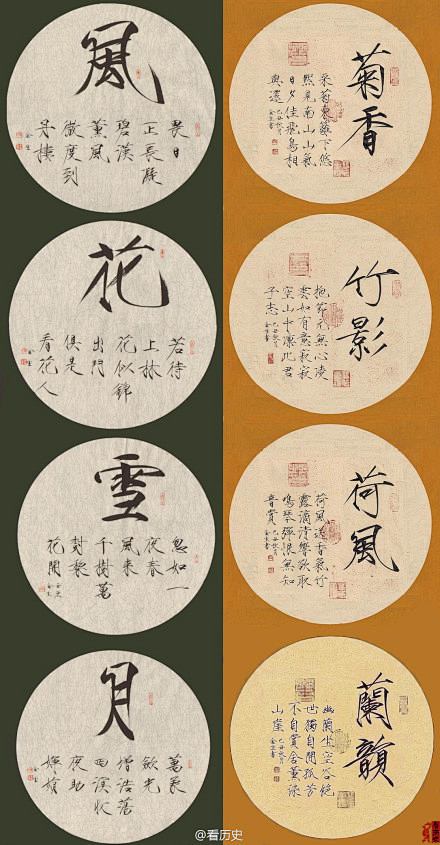 風
畏日
正長凝
碧漢
薰風
微度到
丹樓
金生
花
若待
上林
花似錦
出門
俱是
看花人
金生
雪
忽如一
夜春
風來
千樹萬
樹梨
花開
月
萬象
斂光
增浩蕩
四溟收
夜助
嬋娟
金生
菊香
采菊東籬下悠
然見南山山氣
日夕佳飛鳥相
與還
竹影
抱節元無心凌
雲如有意寂寂
空山中凜此君
子志
荷風
荷風送香氣竹
露滴清響欲取
鳴琴彈恨無知
音賞
蘭韻
幽蘭生空谷絕
世獨自開孤芳
不自賞含薰
山崖
@看历史